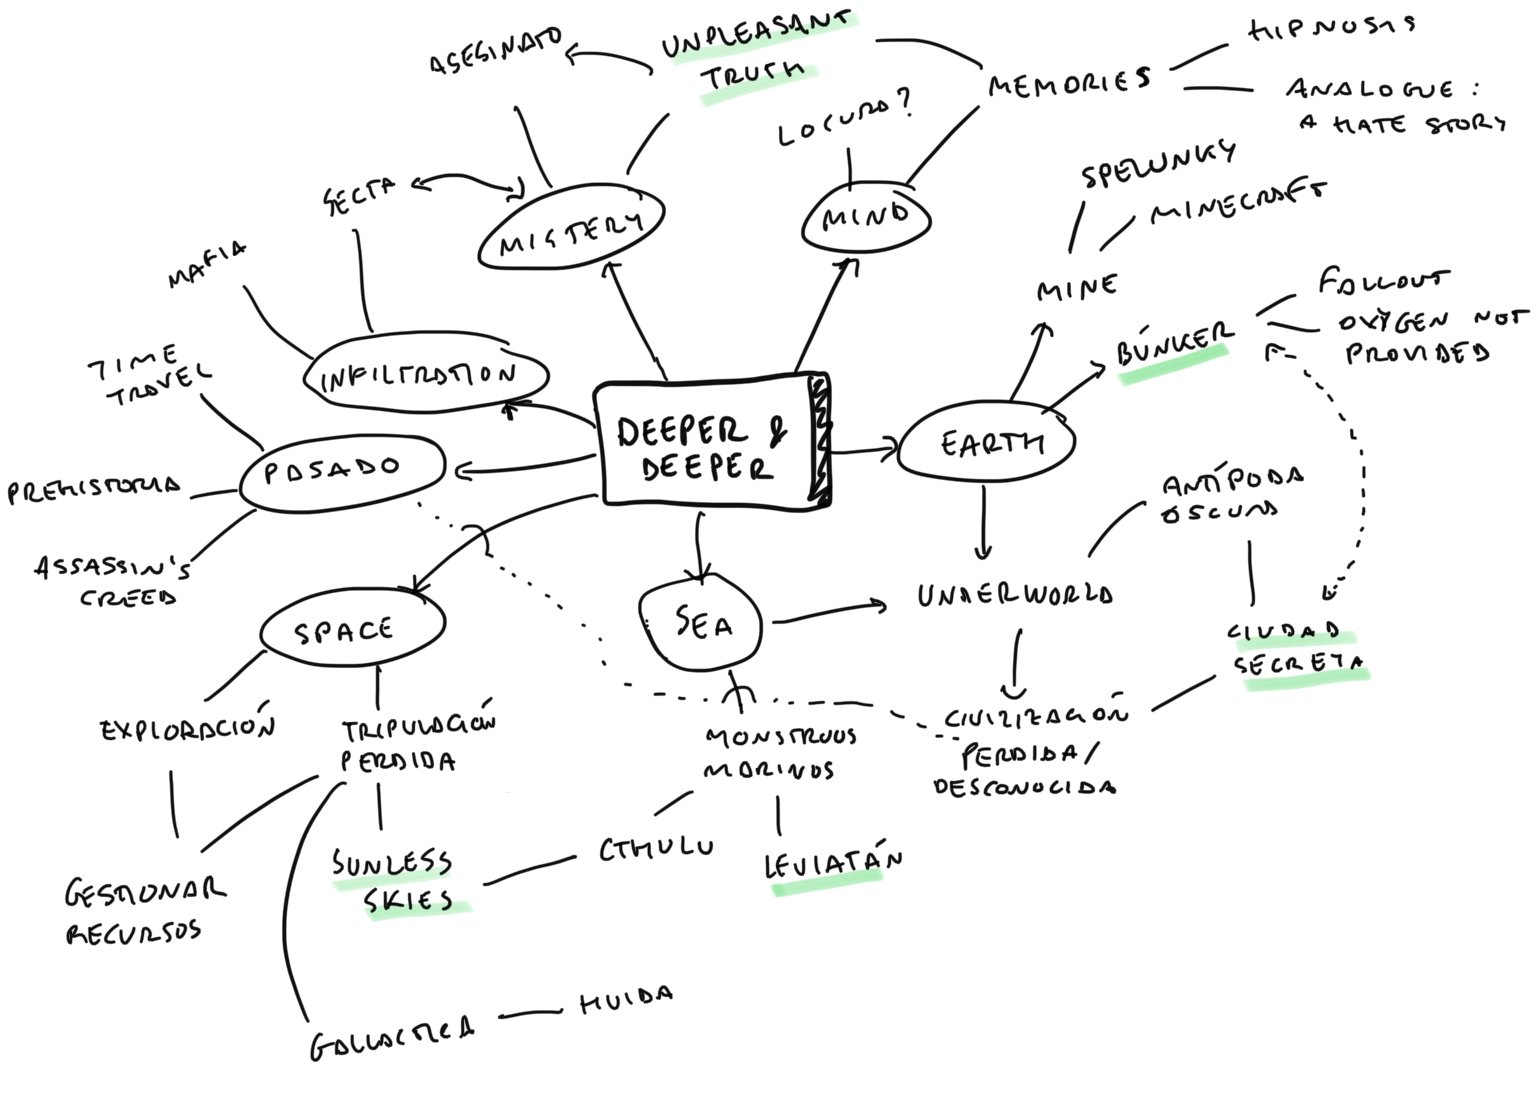 HIPNOSIS
UNPLEASANT
TRUTH
ASESINATO
MEMORIES
ANALOGUE:
A HATE STORY
LOCURA?
SPELUNKY
MINECRAFT
SECTA
MISTERY
MIND
MAFIA
MINE
FALLOUT
OXYGEN NOT
PROVIDED
BÚNKER
TIME
TRAVEL
INFILTRATION
DEEPER &
DEEPER
EARTH
PASADO
PREHISTORIA
ANTÍPODA
OSCURA
ASSASSIN'S
CREED
UNDERWORLD
SPACE
SEA
CIUDAD
SECRETA
EXPLORACIÓN
TRIPULACIÓN
PERDIDA
MONSTRUOS
MARINOS
CIVILIZACIÓN
PERDIDA/
DESCONOCIDA
SUNLESS
SKIES
CTHULU
LEVIATÁN
GESTIONAR
RECURSOS
GALLACTICA
HUIDA